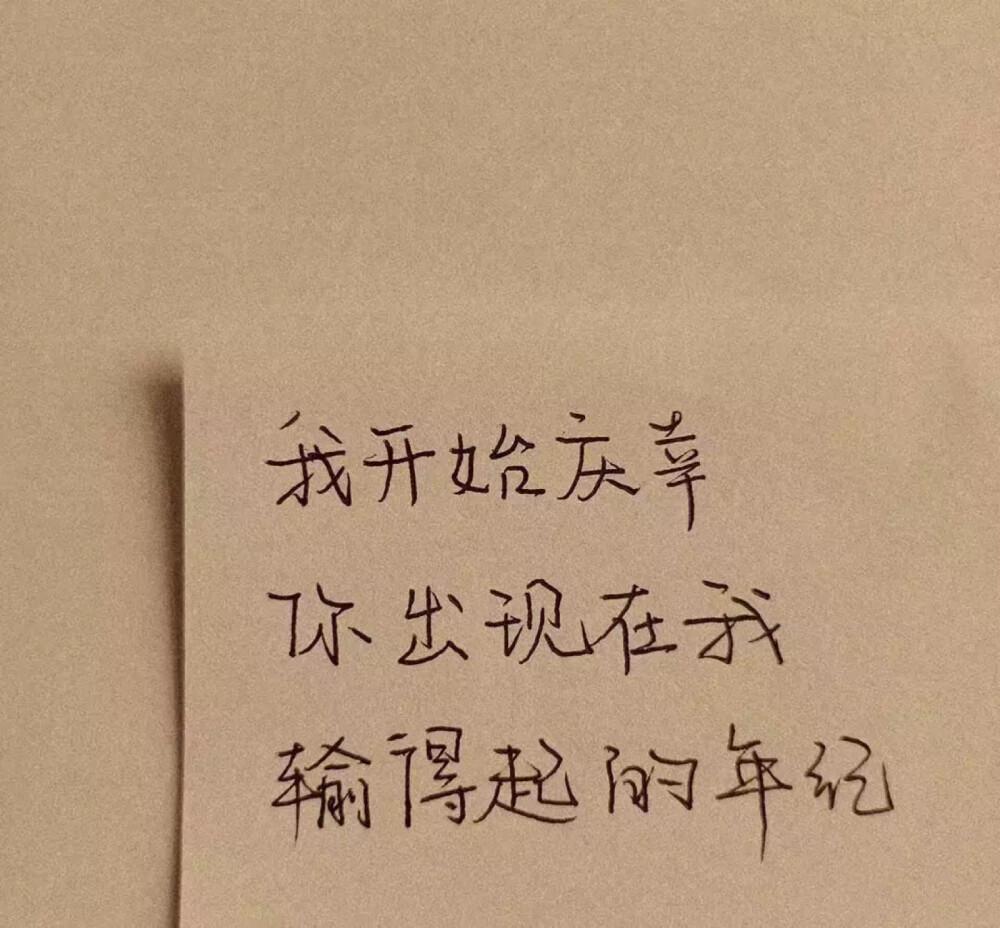 我开始庆幸
你出现在我
输得起的年纪